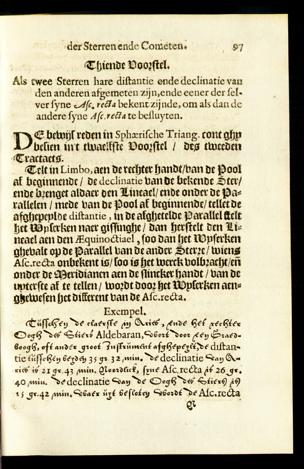 der Sterren ende Cometen. 97
Thiende Voorstel.
Als twee Sterren hare distantie ende declinatie van
den anderen afgemeten zijn, ende eener der sel-
ver syne Asc. recta bekent zijnde, om als dan de
andere syne Asc. recta te besluyten.
DE bewijs reden in Sphærische Triang. cont ghy
besien in't twaelfste Voorstel / des tweeden
Tractaets.
Telt in Limbo, aen de rechter handt / van de Pool
af beginnende / de declinatie van de bekende Ster /
ende brenget aldaer den Liniael / ende onder de Pa-
rallelen / mede van de Pool af beginnende / tellet de
afghepeylde distantie, in de afghetelde Parallel stelt
het Wyserken naer gissinghe / dan herstelt den Li-
neael aen den Æquinoctiael, soo dan het Wyserken
ghevalt op de Parallel van de ander Sterre / wiens
Asc. recta onbekent is / soo is het werck volbracht / en
onder de Meridianen aen de slincker handt / van de
uyterste af te tellen / wordt door het Wyserken aen-
ghewesen het different van de Asc. recta.
Exempel.
Tusschen de claerste in Aries, ende het rechter
Oogh des Stiers Aldebaran, wort door een Graed-
boogh, oft ander groot Instrument afghepeylt, de distan-
tie tusschen beyden 35 gr. 32. min. de declinatie van A-
ries is 21 gr. 43 min. Noordelick, syne Asc. recta is 26 gr.
40. min. de declinatie van de Oogh des Stiers is
15 gr. 42 min. waer uyt besloten wordt de Asc. recta